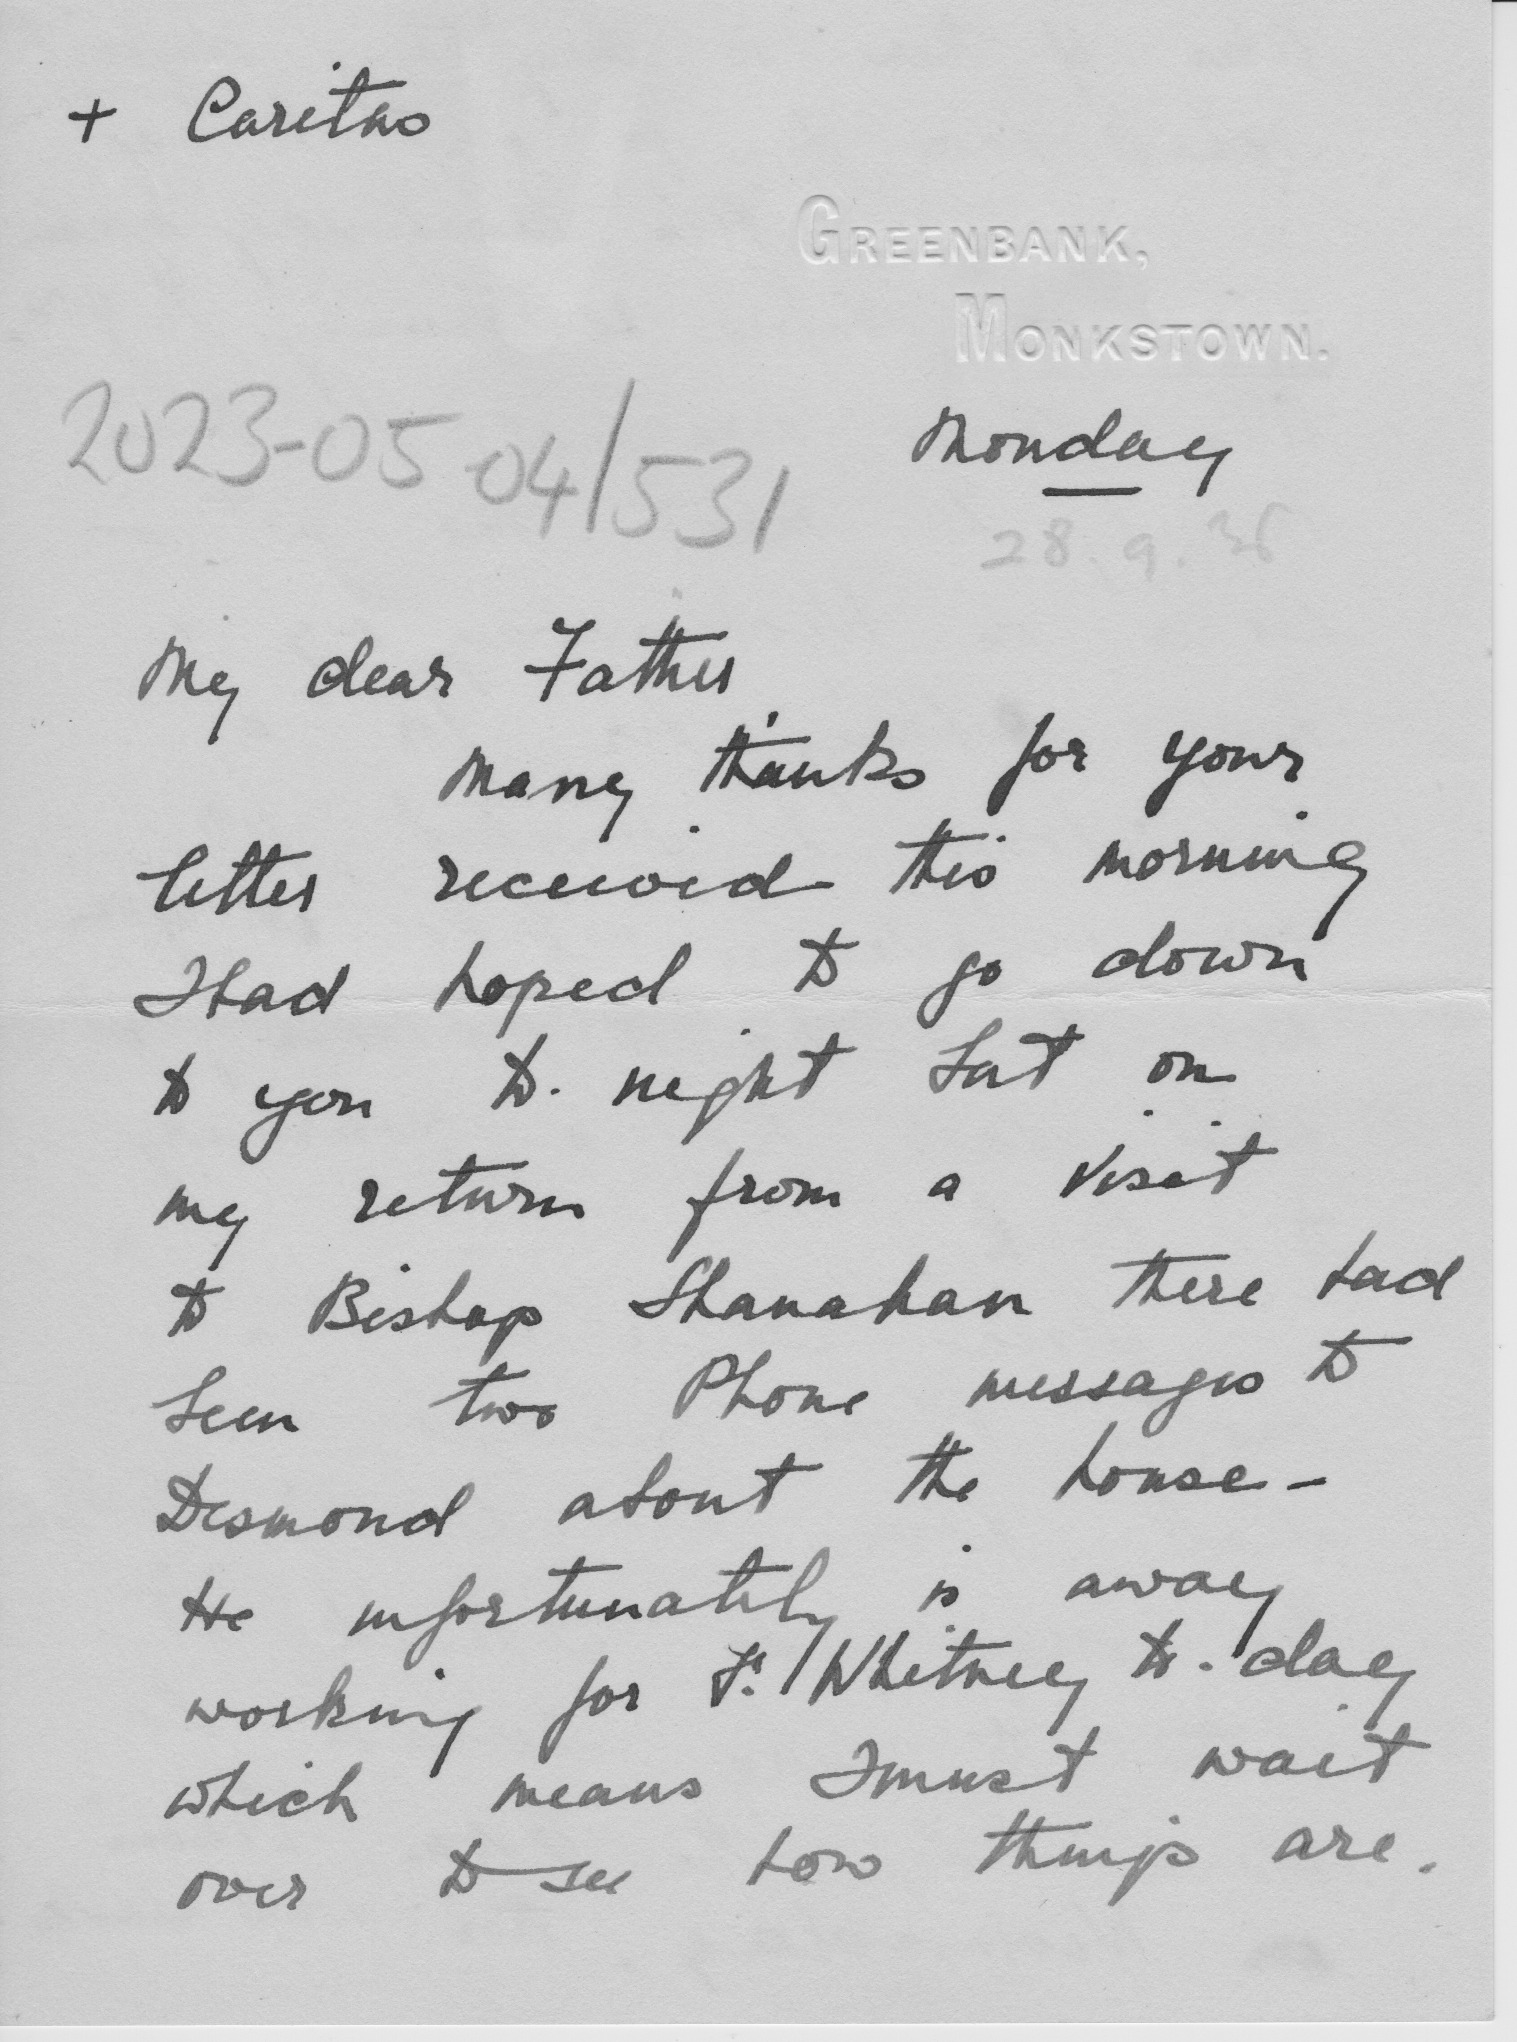 + Caritas
GREENBANK,
MONKSTOWN.
Monday
2023-05-04/531
28.9.36
My dear Father
Many thanks for your
letter received this morning
I had hoped to go down
to you to.night but on
my return from a visit
to Bishop Shanahan there had
been two Phone messages to
Desmond about the house -
He unfortunately is away
working for Fr. Whitney to.day
which means I must wait
over to see how things are.